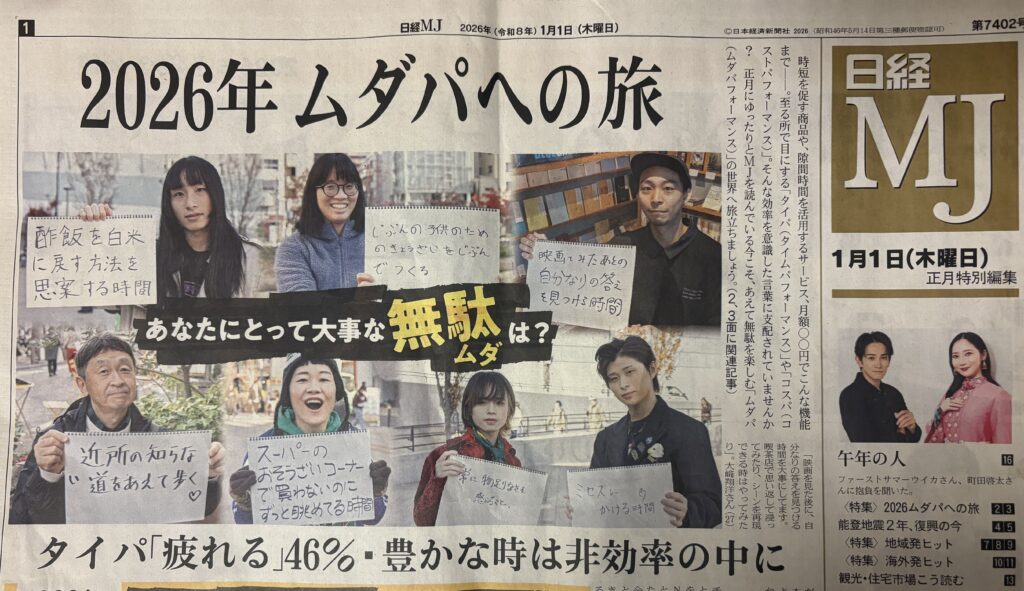 1
日経MJ 2026年(令和8年)1月1日(木曜日)
©日本経済新聞社 2026 (昭和46年5月14日第三種郵便物認可)
第7402号
2026年 ムダパへの旅
時短を促す商品や、隙間時間を活用するサービス、月額〇〇円でこんな機能
まで――。至る所で目にする「タイパ(タイムパフォーマンス)」や「コスパ(コ
ストパフォーマンス)」。そんな効率を意識した言葉に支配されていませんか
? 正月にゆったりとMJを読んでいる今こそ、あえて無駄を楽しむ「ムダパ
(ムダパフォーマンス)」の世界へ旅立ちましょう。(2、3面に関連記事)
日経
MJ
1月1日(木曜日)
正月特別編集
酢飯を白米
に戻す方法を
思案する時間
じぶんの子供のため
のきょうざいをじぶん
でつくる
映画をみたあとの
自分なりの答え
を見つける時間
あなたにとって大事な無駄は?
ムダ
近所の知らな
い道をあえて歩く♡
スーパーの
おそうざいコーナー
で買わないのに
ずっと眺めてる時間
ミセスに
かける時間
「映画を見た後に、自
分なりの答えを見つける
時間を大事にしてます。
喫茶店で思い返して浸っ
てみたり、シーンを再現
できる時はやってみた
り」、大嶋翔洋さん(27)
タイパ「疲れる」46%・豊かな時は非効率の中に
午年の人 16
ファーストサマーウイカさん、町田啓太さ
んに抱負を聞いた。
〈特集〉2026ムダパへの旅 2 3
能登地震2年、復興の今 4 5
〈特集〉地域発ヒット 7 8 9
〈特集〉海外発ヒット 10 11
観光・住宅市場こう読む 13